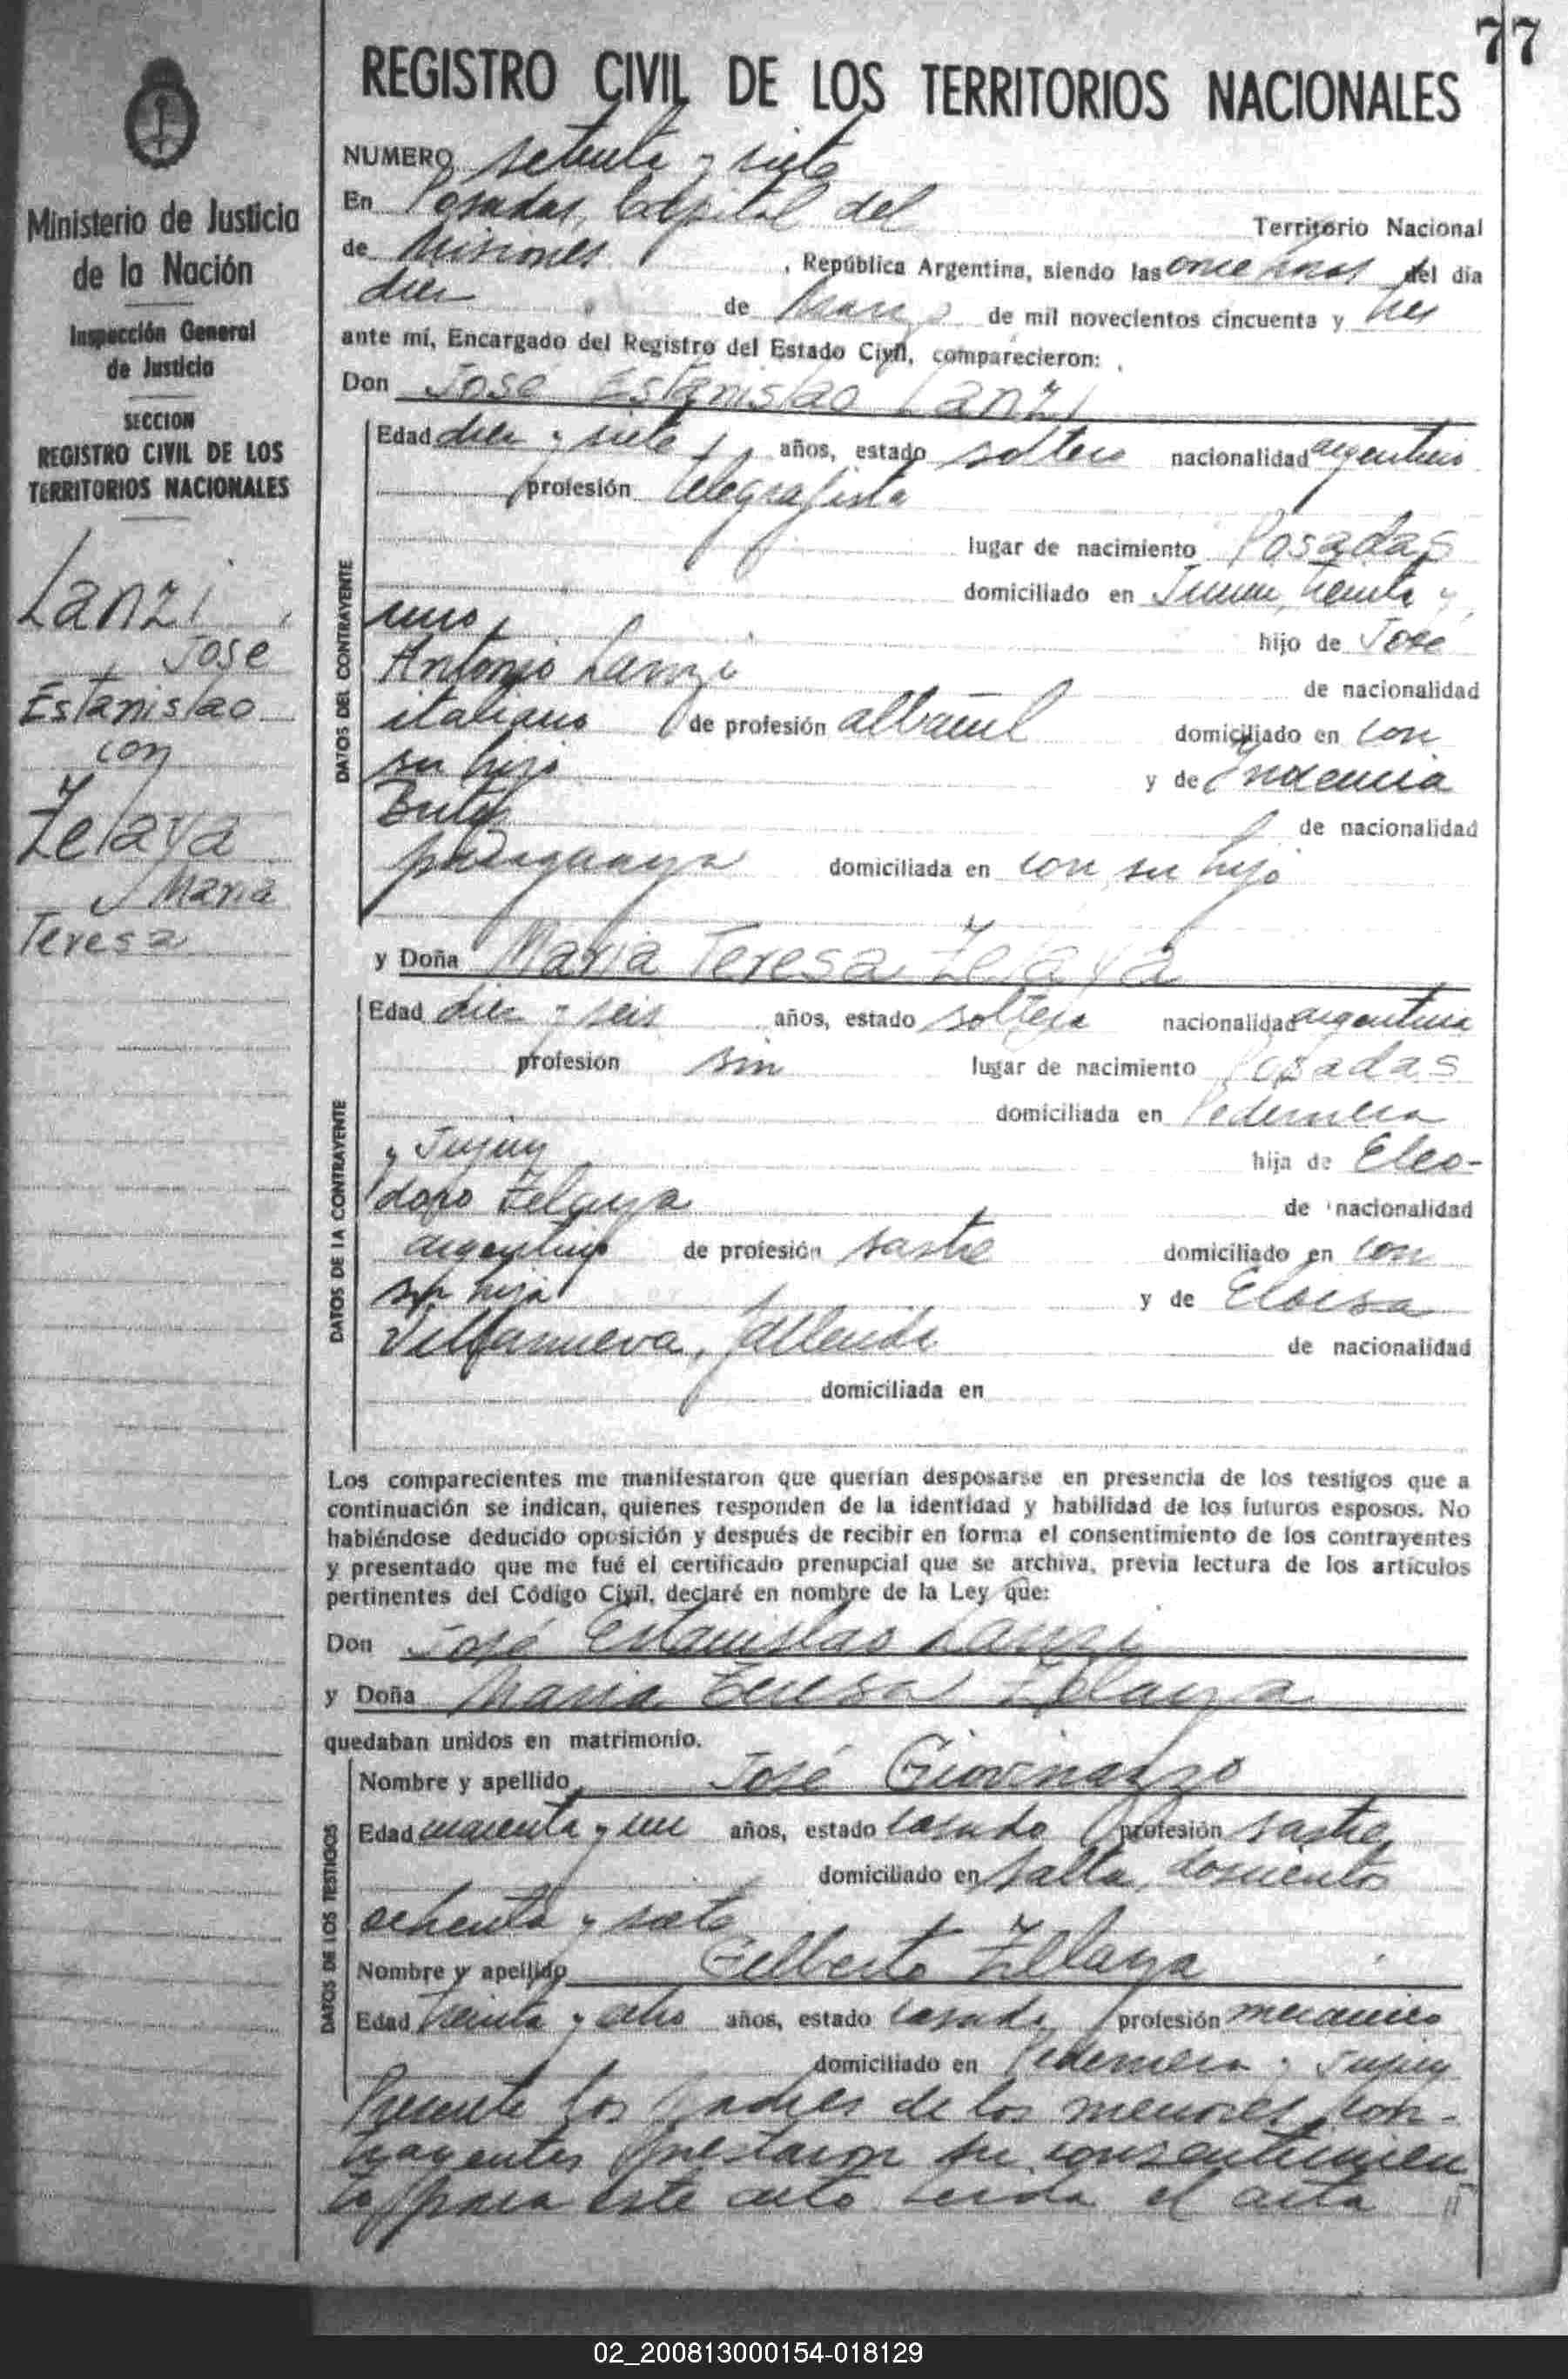 77
REGISTRO CIVIL DE LOS TERRITORIOS NACIONALES
Ministerio de Justicia
de la Nación
Inspección General
de Justicia
SECCION
REGISTRO CIVIL DE LOS
TERRITORIOS NACIONALES
Lanzi,
José
Estanislao
con
Zelaya
Maria
Teresa
NUMERO setenta y siete
En Posadas, Capital del Territorio Nacional
de Misiones, República Argentina, siendo las once horas del día
diez de marzo de mil novecientos cincuenta y tres
ante mí, Encargado del Registro del Estado Civil, comparecieron:
Don José Estanislao Lanzi
DATOS DEL CONTRAYENTE
Edad diez y siete años, estado soltero nacionalidad argentino
profesión telegrafista
lugar de nacimiento Posadas
domiciliado en Junin, treinta y
uno, hijo de José
Antonio Lanzi de nacionalidad
italiano de profesión albañil domiciliado en con
su hijo y de
de nacionalidad
paraguaya domiciliada en con su hijo
y Doña Maria Teresa Zelaya
DATOS DE LA CONTRAYENTE
Edad diez y seis años, estado soltera nacionalidad argentina
profesión sin lugar de nacimiento Posadas
domiciliada en Pedernera
y Jujuy hija de Eleo-
doro Zelaya de nacionalidad
argentino de profesión sastre domiciliado en con
su hija y de Eloisa
Villanueva, fallecida de nacionalidad
domiciliada en
Los comparecientes me manifestaron que querían desposarse en presencia de los testigos que a
continuación se indican, quienes responden de la identidad y habilidad de los futuros esposos. No
habiéndose deducido oposición y después de recibir en forma el consentimiento de los contrayentes
y presentado que me fué el certificado prenupcial que se archiva, previa lectura de los artículos
pertinentes del Código Civil, declaré en nombre de la Ley que:
Don José Estanislao Lanzi
y Doña Maria Teresa Zelaya
quedaban unidos en matrimonio.
DATOS DE LOS TESTIGOS
Nombre y apellido José Giovinazzo
Edad cuarenta y un años, estado casado profesión sastre,
domiciliado en Salta, doscientos
ochenta y siete
Nombre y apellido Gilberto Zelaya
Edad treinta y ocho años, estado casado profesión mecánico
domiciliado en Pedernera y Jujuy
Presente los padres de los menores con-
trayentes prestaron su consentimien
to para este acto. Leida el acta
02_200813000154-018129